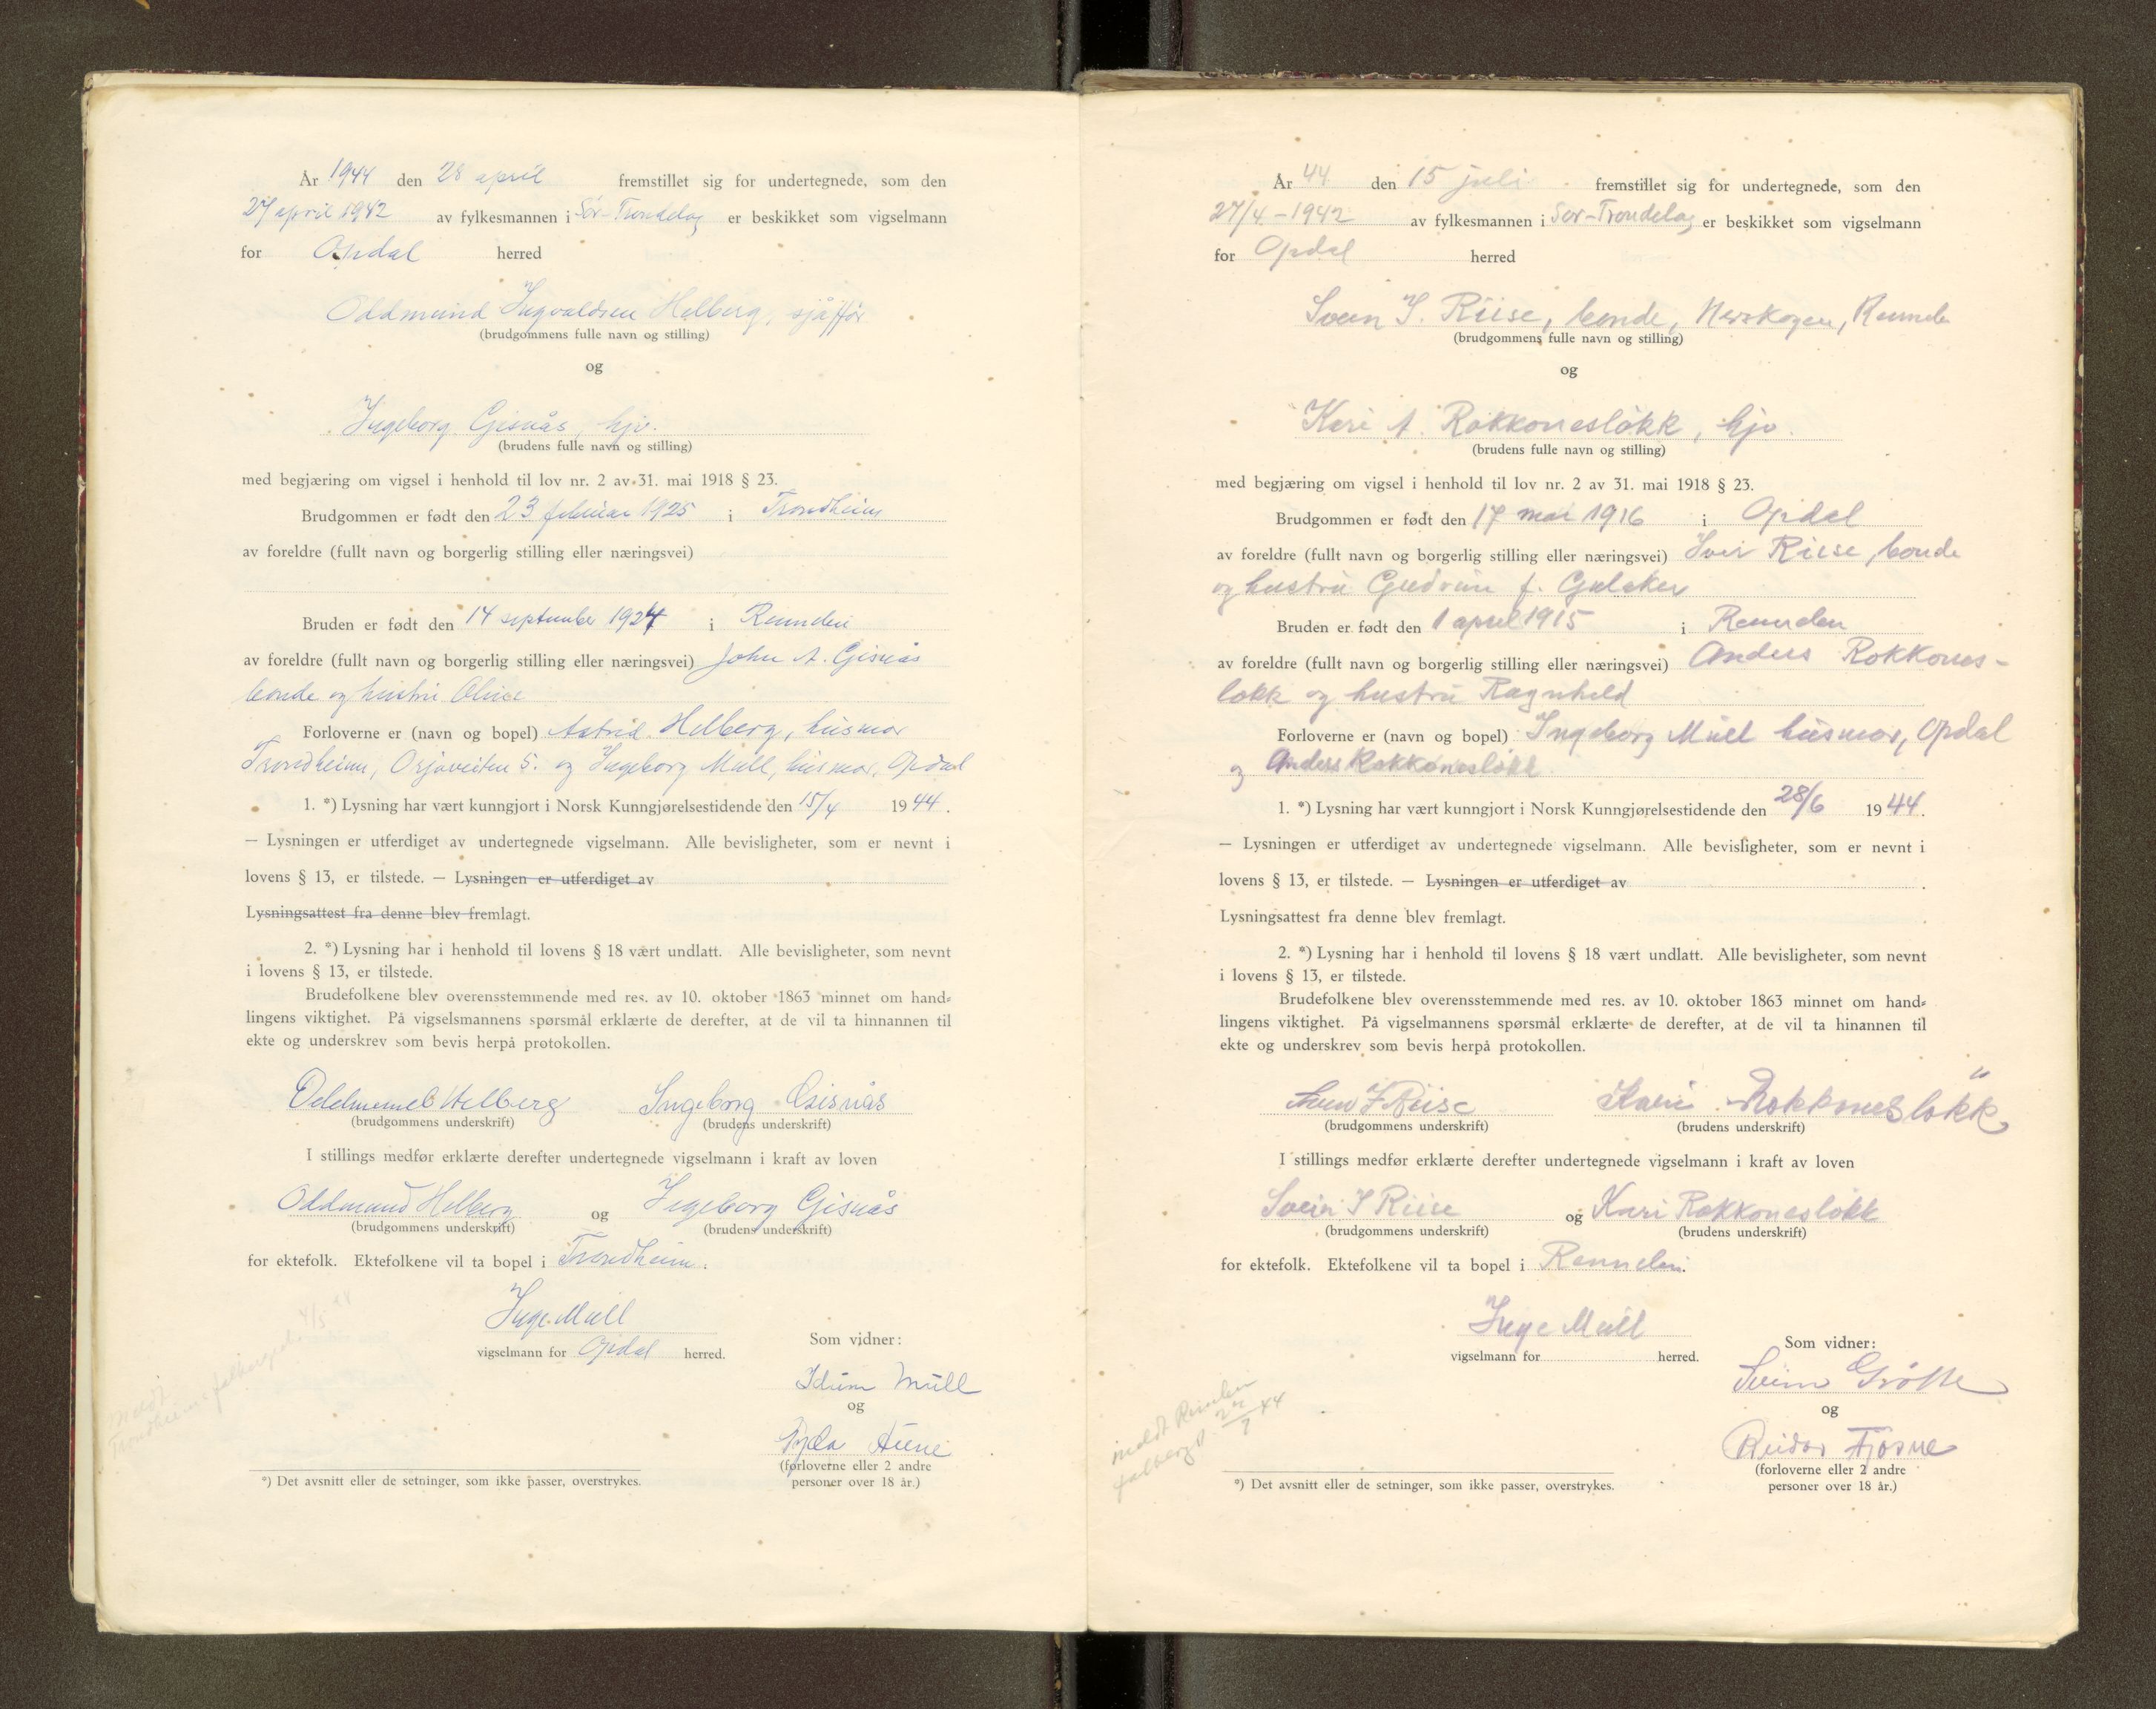 År 1944 den 28 april fremstillet sig for undertegnede, som den
27 april 1942 av fylkesmannen i Sør-Trøndelag er beskikket som vigselmann
for Opdal herred
Oddmund Ingvaldsen Helberg, sjåffør
(brudgommens fulle navn og stilling)
og
Ingeborg Gisnås, hjv.
(brudens fulle navn og stilling)
med begjæring om vigsel i henhold til lov nr. 2 av 31. mai 1918 § 23.
Brudgommen er født den 23 februar 1925 i Trondheim
av foreldre (fullt navn og borgerlig stilling eller næringsvei)
Bruden er født den 14 september 1924 i Rennebu
av foreldre (fullt navn og borgerlig stilling eller næringsvei) John A. Gisnås
bonde og hustru
Forloverne er (navn og bopel) Astrid Helberg, husmor
Trondheim, 5. og Ingeborg Mull, husmor, Opdal
1. *) Lysning har vært kunngjort i Norsk Kunngjørelsestidende den 15/4 1944.
— Lysningen er utferdiget av undertegnede vigselmann. Alle bevisligheter, som er nevnt i
lovens § 13, er tilstede. — Lysningen er utferdiget av
Lysningsattest fra denne blev fremlagt.
2. *) Lysning har i henhold til lovens § 18 vært undlatt. Alle bevisligheter, som nevnt
i lovens § 13, er tilstede.
Brudefolkene blev overensstemmende med res. av 10. oktober 1863 minnet om hand-
lingens viktighet. På vigselsmannens spørsmål erklærte de derefter, at de vil ta hinnannen til
ekte og underskrev som bevis herpå protokollen.
Oddmund Helberg Ingeborg Gisnås
(brudgommens underskrift) (brudens underskrift)
I stillings medfør erklærte derefter undertegnede vigselmann i kraft av loven
Oddmund Helberg og Ingeborg Gisnås
(brudgommens underskrift) (brudens underskrift)
for ektefolk. Ektefolkene vil ta bopel i Trondheim.
Inge Mull
vigselmann for Opdal herred.
Som vidner:
Idunn Mull
og
Gyda Aune
(forloverne eller 2 andre
personer over 18 år.)
meldt 4/5 44
Trondheim folkereg.
*) Det avsnitt eller de setninger, som ikke passer, overstrykes.
År 44 den 15 juli fremstillet sig for undertegnede, som den
27/4-1942 av fylkesmannen i Sør-Trøndelag er beskikket som vigselmann
for Opdal herred
Svein I. Riise, bonde, Nerskogen, Rennebu
(brudgommens fulle navn og stilling)
og
Kari A. Rokkonesløkk, hjv.
(brudens fulle navn og stilling)
med begjæring om vigsel i henhold til lov nr. 2 av 31. mai 1918 § 23.
Brudgommen er født den 17 mai 1916 i Opdal
av foreldre (fullt navn og borgerlig stilling eller næringsvei) Iver Riise, bonde
og hustru Gudrun f.
Bruden er født den 1 april 1915 i Rennebu
av foreldre (fullt navn og borgerlig stilling eller næringsvei) Anders Rokkones-
løkk og hustru Ragnhild
Forloverne er (navn og bopel) Ingeborg Mull husmor, Opdal
og Anders Rokkonesløkk
1. *) Lysning har vært kunngjort i Norsk Kunngjørelsestidende den 28/6 1944.
— Lysningen er utferdiget av undertegnede vigselmann. Alle bevisligheter, som er nevnt i
lovens § 13, er tilstede. — Lysningen er utferdiget av
Lysningsattest fra denne blev fremlagt.
2. *) Lysning har i henhold til lovens § 18 vært undlatt. Alle bevisligheter, som nevnt
i lovens § 13, er tilstede.
Brudefolkene blev overensstemmende med res. av 10. oktober 1863 minnet om hand-
lingens viktighet. På vigselmannens spørsmål erklærte de derefter, at de vil ta hinannen til
ekte og underskrev som bevis herpå protokollen.
Svein I Riise Kari Rokkonesløkk
(brudgommens underskrift) (brudens underskrift)
I stillings medfør erklærte derefter undertegnede vigselmann i kraft av loven
Svein I Riise og Kari Rokkonesløkk
(brudgommens underskrift) (brudens underskrift)
for ektefolk. Ektefolkene vil ta bopel i Rennebu.
Inge Mull
vigselmann for herred.
Som vidner:
Svein Grøtte
og
Reidar Fjøsne
(forloverne eller 2 andre
personer over 18 år.)
meldt Rennebu
*) Det avsnitt eller de setninger, som ikke passer, overstrykes.